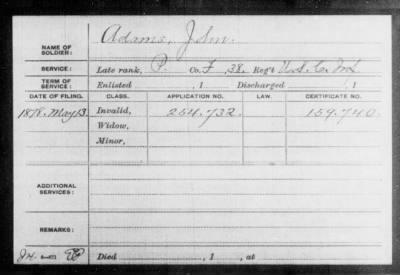 Adams, John.
NAME OF
SOLDIER:
SERVICE: Late rank, P. Co. F, 38, Reg't U.S.C. Inf
TERM OF
SERVICE: Enlisted , 1 Discharged , 1
DATE OF FILING. CLASS. APPLICATION NO. LAW. CERTIFICATE NO.
1878. May 13. Invalid, 254.732 159.740.
Widow,
Minor,
ADDITIONAL
SERVICES:
REMARKS:
Died , 1 , at